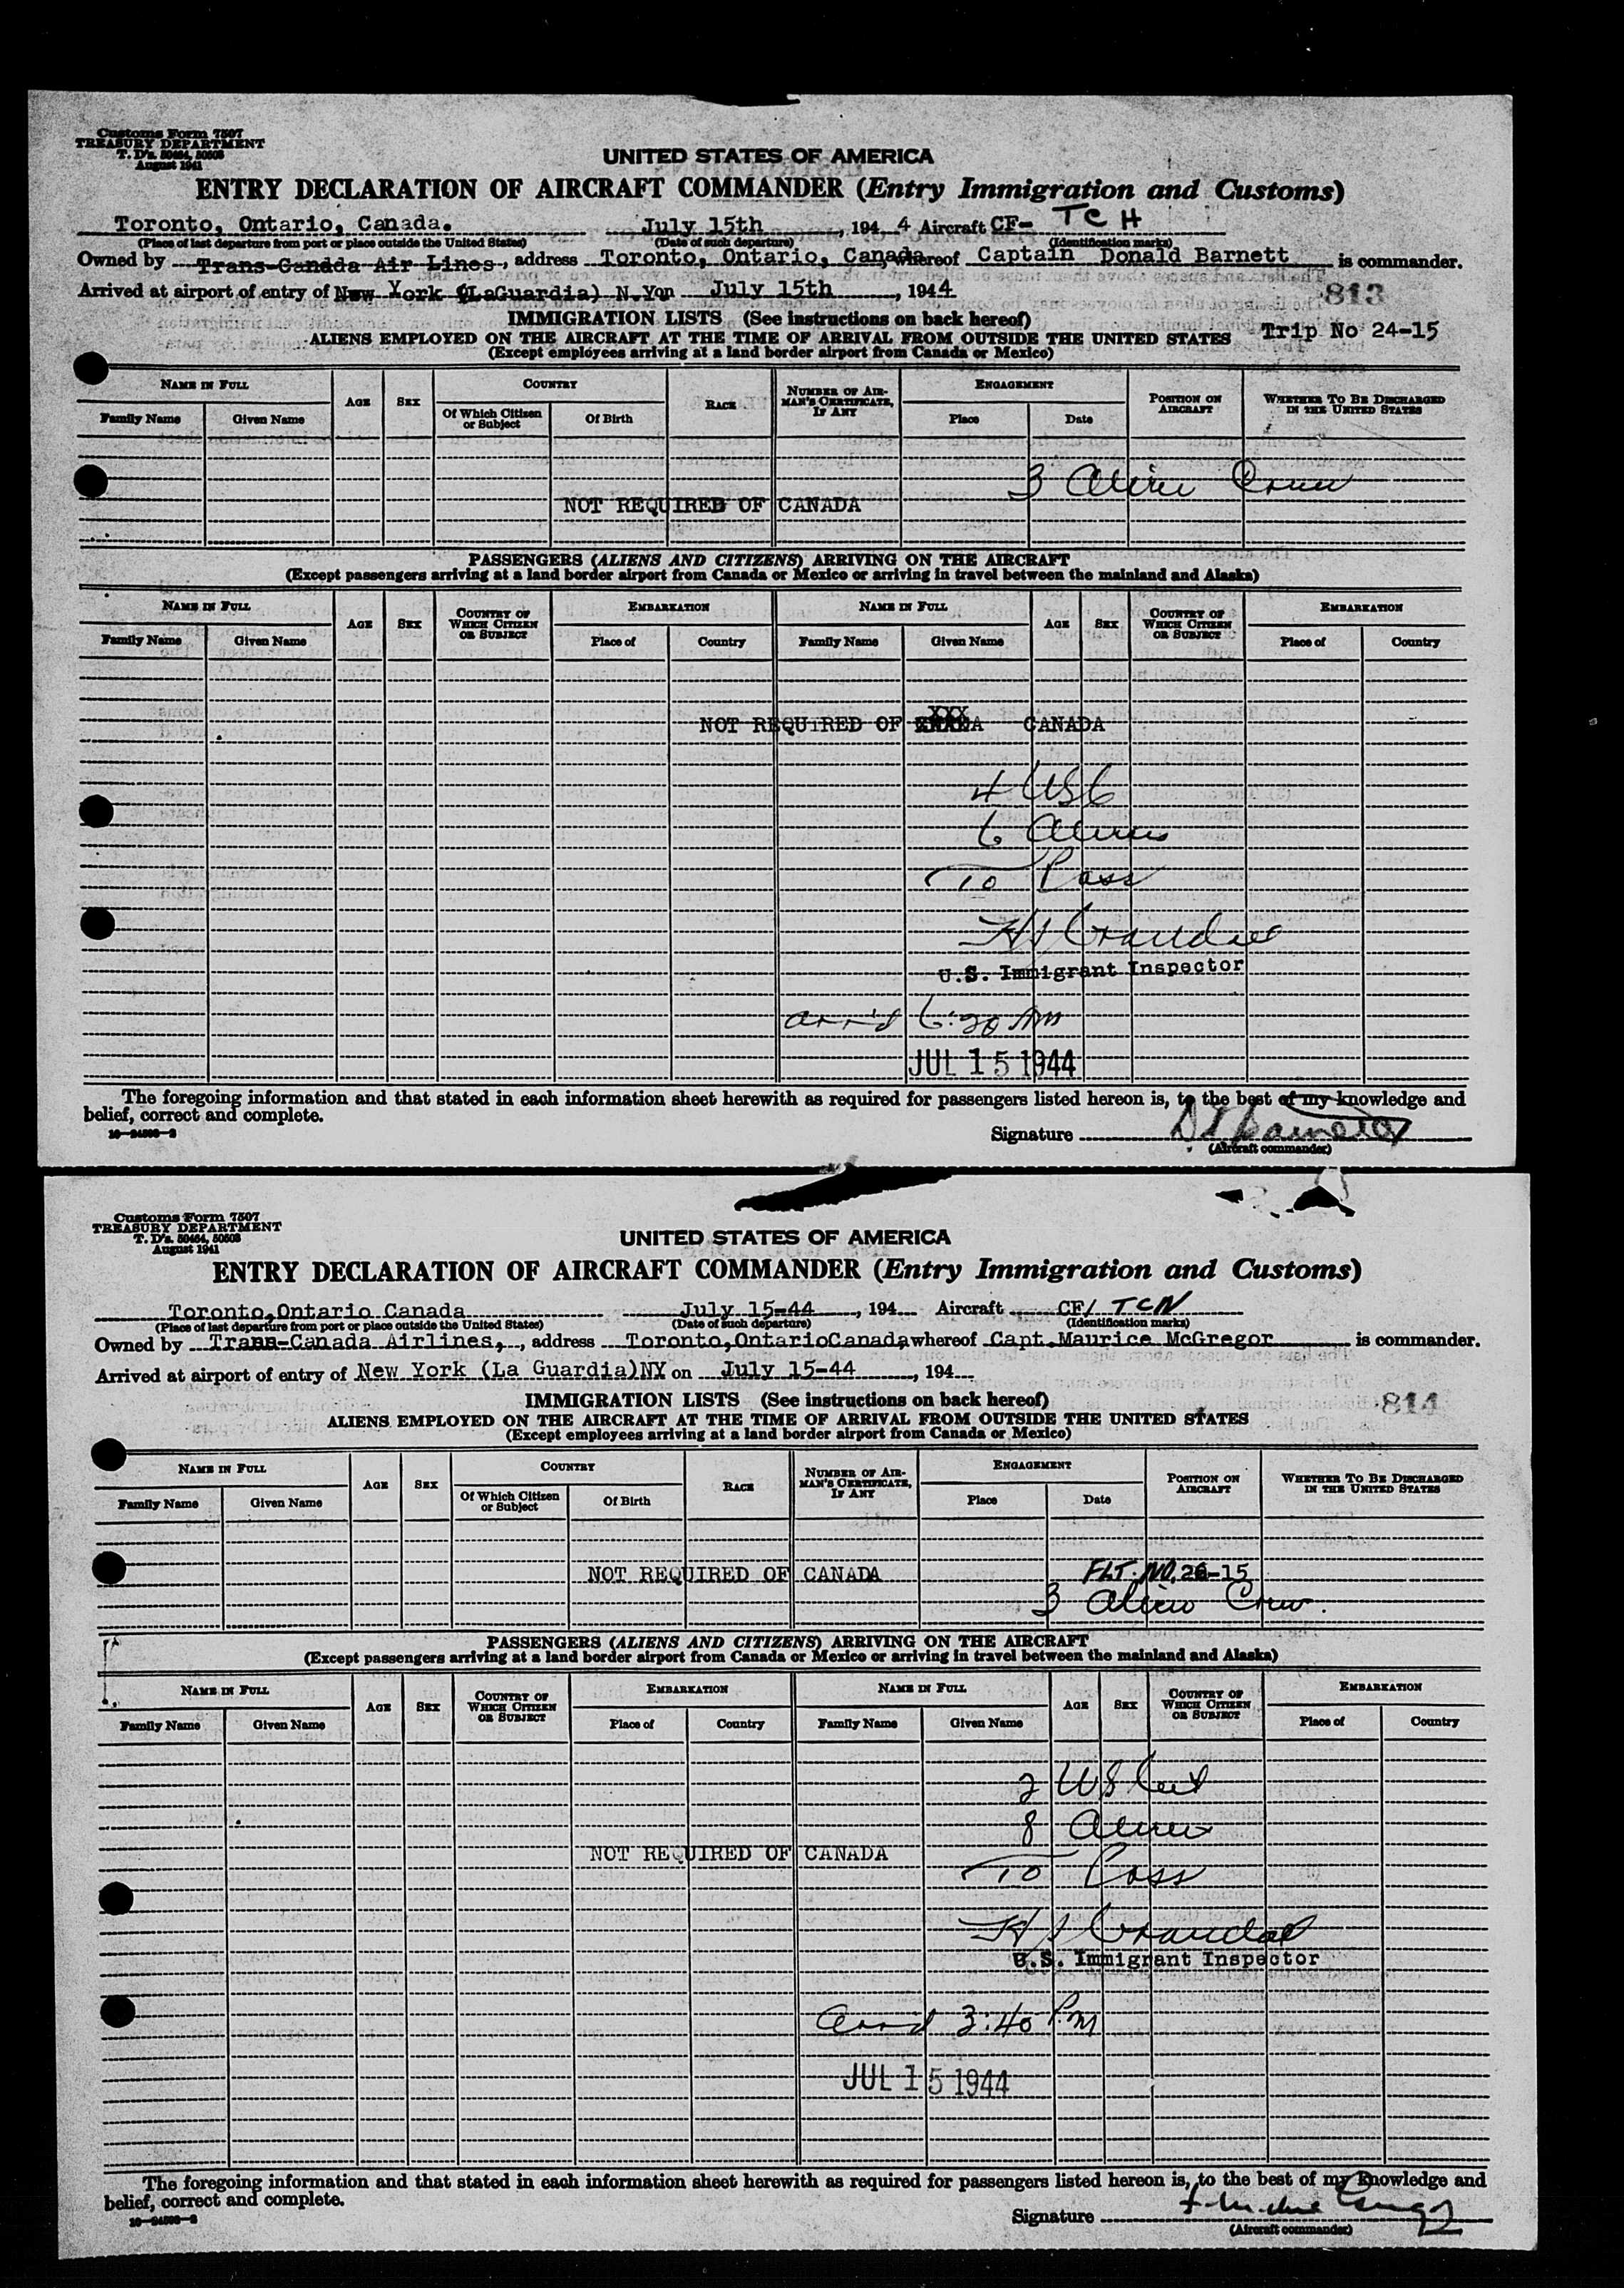 Customs Form 7507
TREASURY DEPARTMENT
T. D's. 50464, 50508
August 1941
UNITED STATES OF AMERICA
ENTRY DECLARATION OF AIRCRAFT COMMANDER (Entry Immigration and Customs)
Toronto, Ontario, Canada. July 15th, 194 4 Aircraft CF- TCH
(Place of last departure from port or place outside the United States) (Date of such departure) (Identification marks)
Owned by Trans-Canada Air Lines, address Toronto, Ontario, Canada whereof Captain Donald Barnett is commander.
Arrived at airport of entry of New York (LaGuardia) N.Y on July 15th, 1944
813
IMMIGRATION LISTS (See instructions on back hereof)
Trip No 24-15
ALIENS EMPLOYED ON THE AIRCRAFT AT THE TIME OF ARRIVAL FROM OUTSIDE THE UNITED STATES
(Except employees arriving at a land border airport from Canada or Mexico)
NAME IN FULL AGE SEX COUNTRY RACE NUMBER OF AIRMAN'S CERTIFICATE, IF ANY ENGAGEMENT POSITION ON AIRCRAFT WHETHER TO BE DISCHARGED IN THE UNITED STATES
Family Name Given Name Of Which Citizen or Subject Of Birth Place Date
3 Alien Crew
NOT REQUIRED OF CANADA
PASSENGERS (ALIENS AND CITIZENS) ARRIVING ON THE AIRCRAFT
(Except passengers arriving at a land border airport from Canada or Mexico or arriving in travel between the mainland and Alaska)
NAME IN FULL AGE SEX COUNTRY OF WHICH CITIZEN OR SUBJECT EMBARKATION NAME IN FULL AGE SEX COUNTRY OF WHICH CITIZEN OR SUBJECT EMBARKATION
Family Name Given Name Place of Country Family Name Given Name Place of Country
XXX
NOT REQUIRED OF CANADA
4 USC
6 Aliens
10 Pass
U.S. Immigrant Inspector
arr'd 6:20 AM
JUL 15 1944
The foregoing information and that stated in each information sheet herewith as required for passengers listed hereon is, to the best of my knowledge and
belief, correct and complete.
16—24508-2
Signature D Barnett
(Aircraft commander)
Customs Form 7507
TREASURY DEPARTMENT
T. D's. 50464, 50508
August 1941
UNITED STATES OF AMERICA
ENTRY DECLARATION OF AIRCRAFT COMMANDER (Entry Immigration and Customs)
Toronto, Ontario Canada July 15-44, 194 Aircraft CF/ TCN
(Place of last departure from port or place outside the United States) (Date of such departure) (Identification marks)
Owned by Trans-Canada Airlines, address Toronto, Ontario Canada, whereof Capt. Maurice McGregor is commander.
Arrived at airport of entry of New York (La Guardia) NY on July 15-44, 194
IMMIGRATION LISTS (See instructions on back hereof)
814
ALIENS EMPLOYED ON THE AIRCRAFT AT THE TIME OF ARRIVAL FROM OUTSIDE THE UNITED STATES
(Except employees arriving at a land border airport from Canada or Mexico)
NAME IN FULL AGE SEX COUNTRY RACE NUMBER OF AIRMAN'S CERTIFICATE, IF ANY ENGAGEMENT POSITION ON AIRCRAFT WHETHER TO BE DISCHARGED IN THE UNITED STATES
Family Name Given Name Of Which Citizen or Subject Of Birth Place Date
NOT REQUIRED OF CANADA FLT. NO. 26-15
3 Alien Crew.
PASSENGERS (ALIENS AND CITIZENS) ARRIVING ON THE AIRCRAFT
(Except passengers arriving at a land border airport from Canada or Mexico or arriving in travel between the mainland and Alaska)
NAME IN FULL AGE SEX COUNTRY OF WHICH CITIZEN OR SUBJECT EMBARKATION NAME IN FULL AGE SEX COUNTRY OF WHICH CITIZEN OR SUBJECT EMBARKATION
Family Name Given Name Place of Country Family Name Given Name Place of Country
2 US Cit
8 Aliens
NOT REQUIRED OF CANADA
10 Pass
U.S. Immigrant Inspector
arr'd 3:40 P.M
JUL 15 1944
The foregoing information and that stated in each information sheet herewith as required for passengers listed hereon is, to the best of my knowledge and
belief, correct and complete.
16—24508-2
Signature
(Aircraft commander)